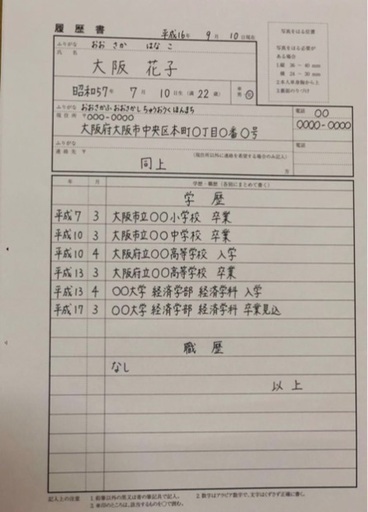 履歴書 平成16年 9月 10日現在
ふりがな おお さか はな こ
氏名 大阪 花子
昭和57年 7月 10日生 (満 22歳)
男 女
写真をはる位置
写真をはる必要が
ある場合
1.縦 36〜40 mm
横 24〜30 mm
2.本人単身胸から上
3.裏面のりづけ
ふりがな おおさかふ おおさかし ちゅうおうく ほんまち
現住所 〒000-0000
大阪府大阪市中央区本町〇丁目〇番〇号
電話 〇〇
0000-0000
ふりがな
連絡先 〒 (現住所以外に連絡を希望する場合のみ記入)
同上
電話
年 月 学歴・職歴(各別にまとめて書く)
学 歴
平成7 3 大阪市立〇〇小学校 卒業
平成10 3 大阪市立〇〇中学校 卒業
平成10 4 大阪府立〇〇高等学校 入学
平成13 3 大阪府立〇〇高等学校 卒業
平成13 4 〇〇大学 経済学部 経済学科 入学
平成17 3 〇〇大学 経済学部 経済学科 卒業見込
職 歴
なし
以上
記入上の注意 1.鉛筆以外の黒又は青の筆記具で記入。 2.数字はアラビア数字で、文字はくずさず正確に書く。
3.※印のところは、該当するものを〇で囲む。